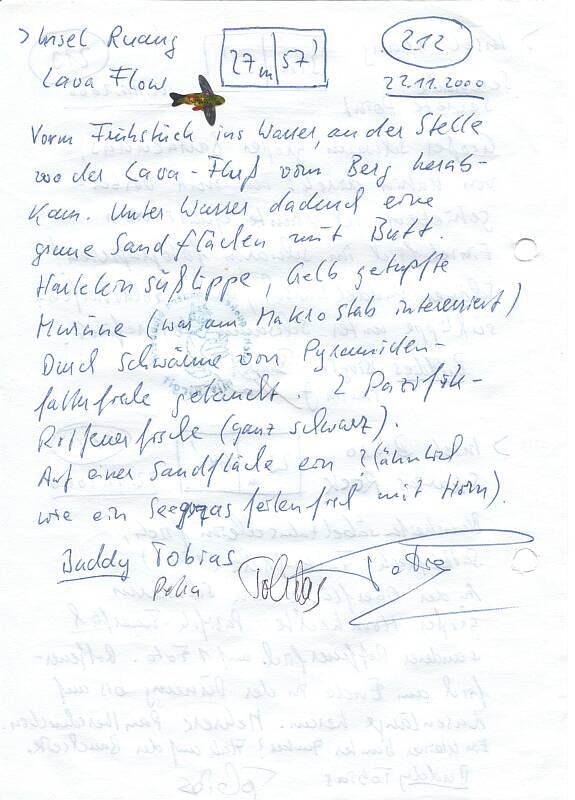 > Insel Ruang
27m 57'
212
Lava Flow
22.11.2000
Vorm Frühstück ins Wasser, an der Stelle
wo der Lava-Fluß vom Berg herab-
kam. Unter Wasser dadurch eine
grüne Sandflächen mit Butt.
Harlekin Süßlippe, Gelb getupfte
Muräne (war am Makrostab interessiert)
Durch Schwärme von Pyramiden-
falterfische getaucht. 2 Pazifik-
Rotfeuerfische (ganz schwarz).
Auf einer Sandfläche ein ? (ähnlich
wie ein Seegrasfeilenfisch mit Horn).
Buddy Tobias
Tobias